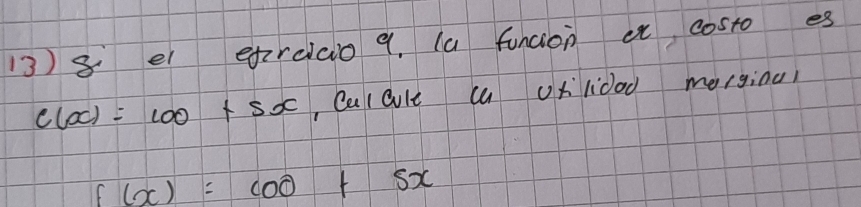 13) Si el ejercicio 9. la función de costo es
C(x) = 100 + 5x, Calcule la utilidad marginal
f(x) = 100 + 5x